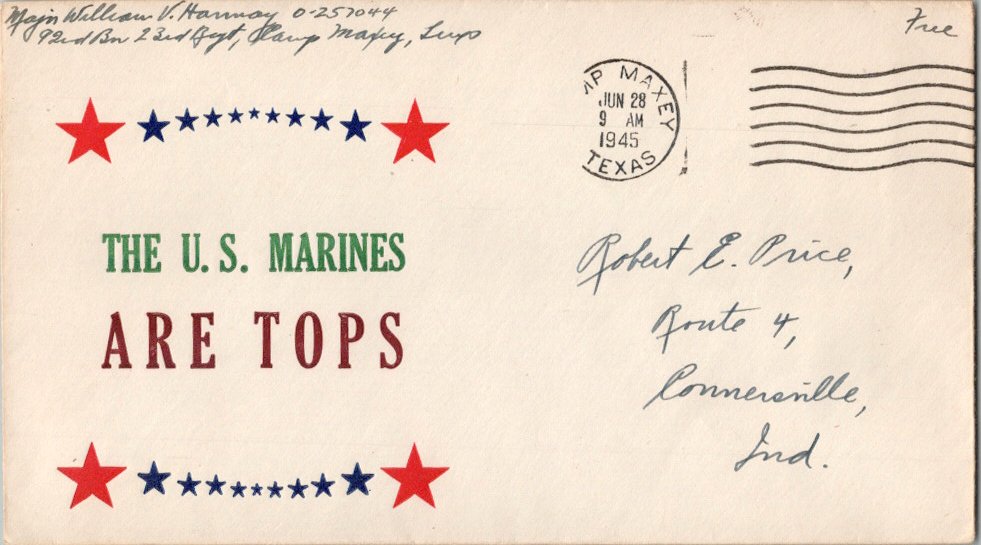 Major William V. Hannay O-257044
92nd Bn 23rd Regt, Camp Maxey, Texas
Free
MP MAXEY
JUN 28
9 AM
1945
TEXAS
THE U. S. MARINES
ARE TOPS
Robert E. Price,
Route 4,
Connersville,
Ind.